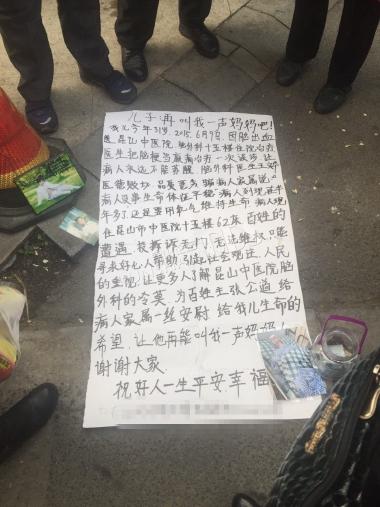 儿子再叫我一声妈妈吧!
我儿今年31岁.2015.6月9日 因脑出血
医昆山中医院 脑外科十五楼住院治疗
医生把脑梗当 治疗 一次误诊 让
病人永远不能苏醒 脑外科医生
医德败坏 品质更 骗病人家属说"
病人没事生命体征平稳"病人到现在半
年多了.还是要用氧气维持生命 病人现
住昆山市中医院十五楼62床 百姓的
遭遇 投拆诉无门.无法维权.只能
寻求好心人帮助 引起社会关注.人民
的 让更多人了解昆山中医院脑
外科的冷莫.为百姓主张公道 给
病人家属一丝安尉 给我儿生命的
希望.让他再能叫我一声妈妈!
谢谢大家.
祝好人一生平安幸福